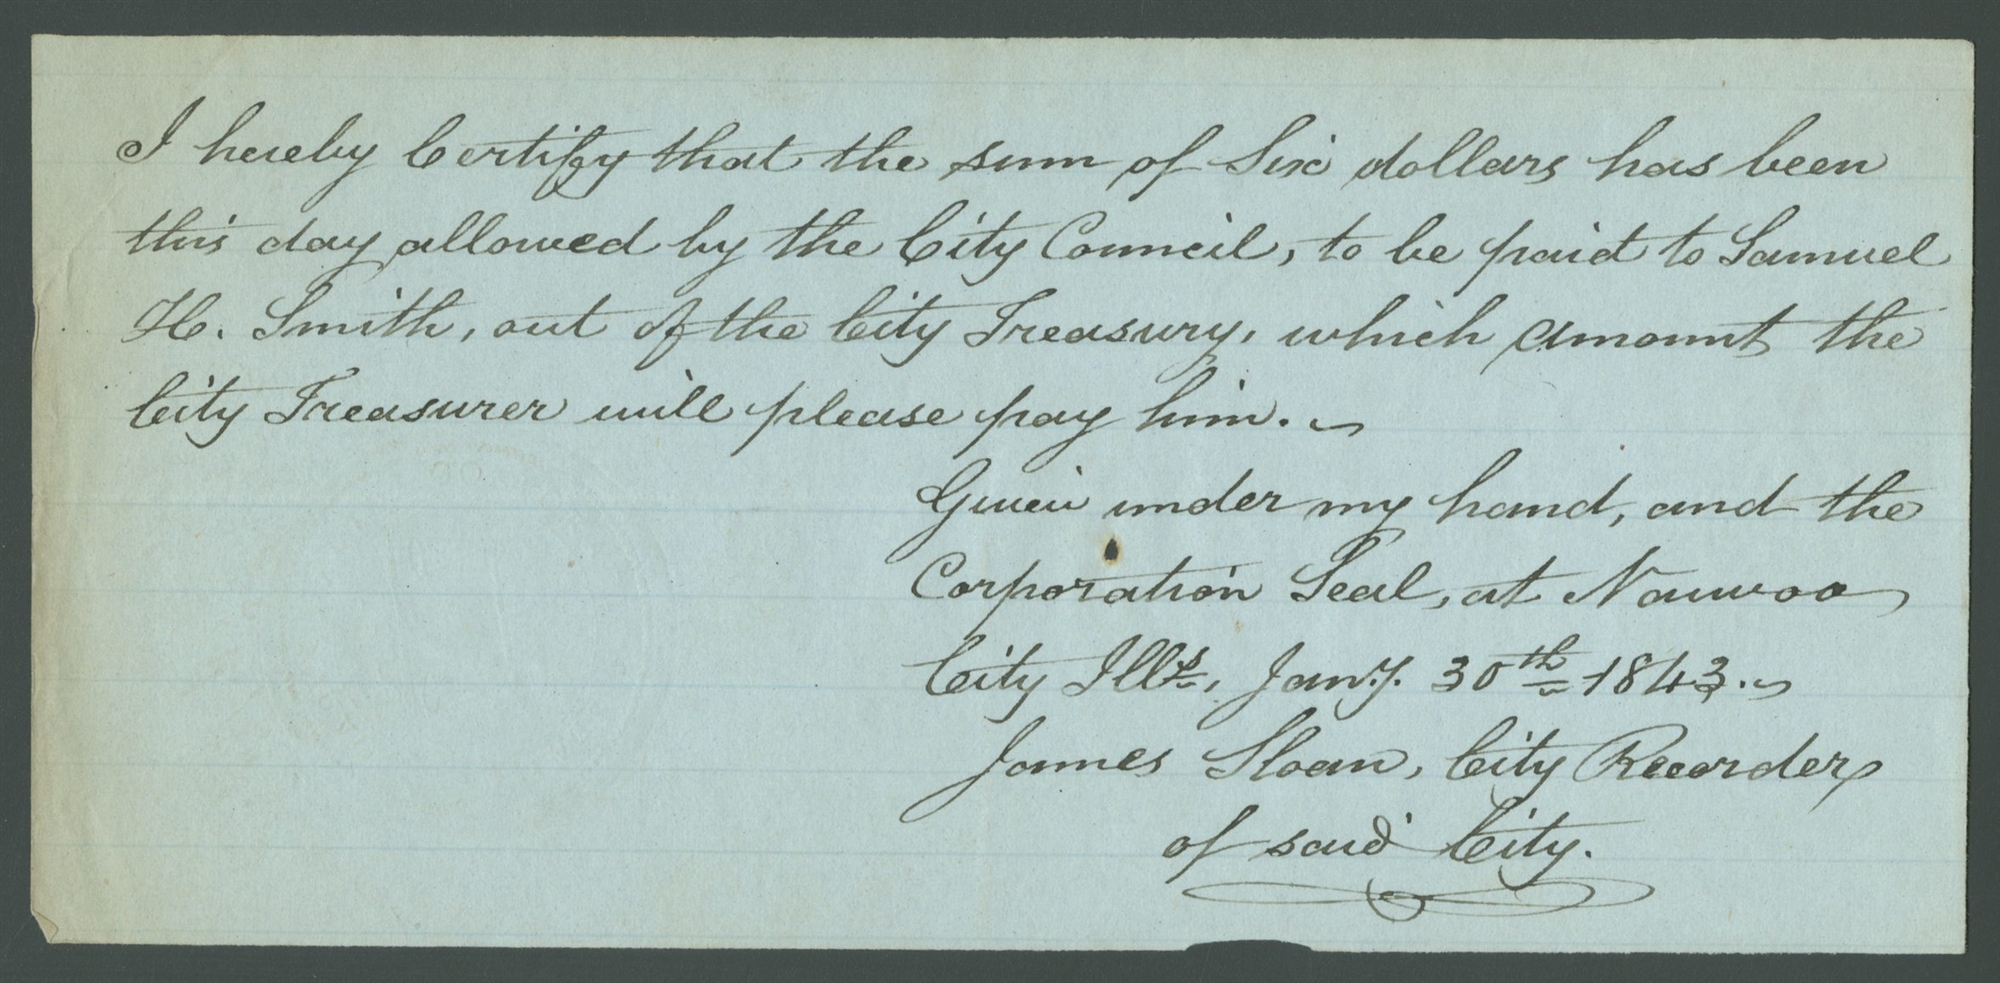 I hereby Certify that the sum of Six dollars has been
this day allowed by the City Council, to be paid to Samuel
H. Smith, out of the City Treasury, which amount the
City Treasurer will please pay him.
Given under my hand, and the
Corporation Seal, at Nauvoo
City Ills., Jany. 30th 1843.
James Sloan, City Recorder
of said City.